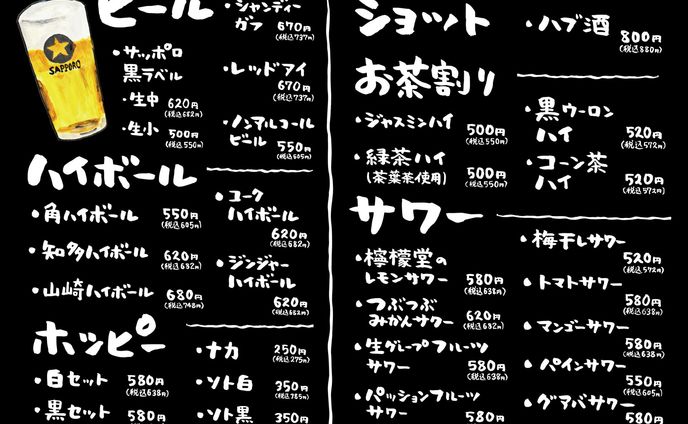 ビール
SAPPORO
・サッポロ
黒ラベル
・生中 620円
(税込682円)
・生小 500円
(税込550円)
・シャンディー
ガフ 670円
(税込737円)
・レッドアイ
670円
(税込737円)
・ノンアルコール
ビール 550円
(税込605円)
ハイボール
・角ハイボール 550円
(税込605円)
・知多ハイボール 620円
(税込682円)
・山崎ハイボール 680円
(税込748円)
・コーク
ハイボール
620円
(税込682円)
・ジンジャー
ハイボール
620円
(税込682円)
ホッピー
・白セット 580円
(税込638円)
・黒セット 580円
・ナカ 250円
(税込275円)
・ソト白 350円
(税込785円)
・ソト黒 350円
ショット
・ハブ酒 800円
(税込880円)
お茶割り
・ジャスミンハイ 500円
(税込550円)
・緑茶ハイ 500円
(茶葉茶使用) (税込550円)
・黒ウーロン
ハイ 520円
(税込572円)
・コーン茶
ハイ 520円
(税込572円)
サワー
・檸檬堂の
レモンサワー 580円
(税込638円)
・つぶつぶ
みかんサワー 620円
(税込682円)
・生グレープフルーツ
サワー 580円
(税込638円)
・パッションフルーツ
サワー 580円
・梅干しサワー
520円
(税込572円)
・トマトサワー
580円
(税込638円)
・マンゴーサワー
580円
(税込638円)
・パインサワー
550円
(税込605円)
・グアバサワー
580円